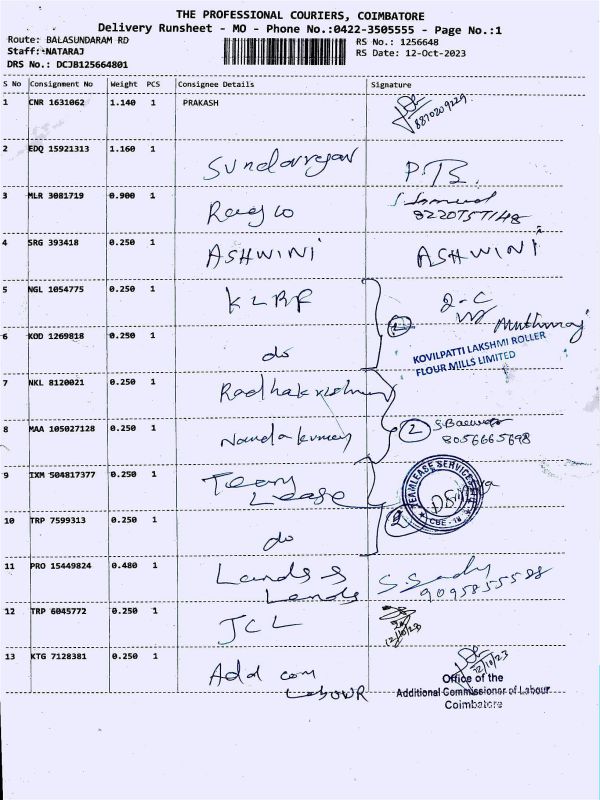 THE PROFESSIONAL COURIERS, COIMBATORE
Delivery Runsheet - MO - Phone No.:0422-3505555 - Page No.:1
Route: BALASUNDARAM RD
RS No.: 1256648
Staff: NATARAJ
RS Date: 12-Oct-2023
DRS No.: DCJB125664801
S No Consignment No Weight PCS Consignee Details Signature
1 CNR 1631062 1.140 1 PRAKASH 8870209229
2 EDQ 15921313 1.160 1
3 MLR 3081719 0.900 1
4 SRG 393418 0.250 1 ASHWINI ASHWINI
5 NGL 1054775 0.250 1 KLRF 2-C
Muthuraj
6 KOD 1269818 0.250 1 do
KOVILPATTI LAKSHMI ROLLER
FLOUR MILLS LIMITED
7 NKL 8120021 0.250 1 Radhakrishnan
8 MAA 105027128 0.250 1 Nandakumar 2
8056665698
9 IXM 504817377 0.250 1 Team
Lease
TEAMLEASE SERVICES
CBE - 18
10 TRP 7599313 0.250 1 do 2
11 PRO 15449824 0.480 1 Lands &
Lands
9095855588
12 TRP 6045772 0.250 1 JCL
12/10/23
13 KTG 7128381 0.250 1 Add com
Labour
12/10/23
Office of the
Additional Commissioner of Labour
Coimbatore